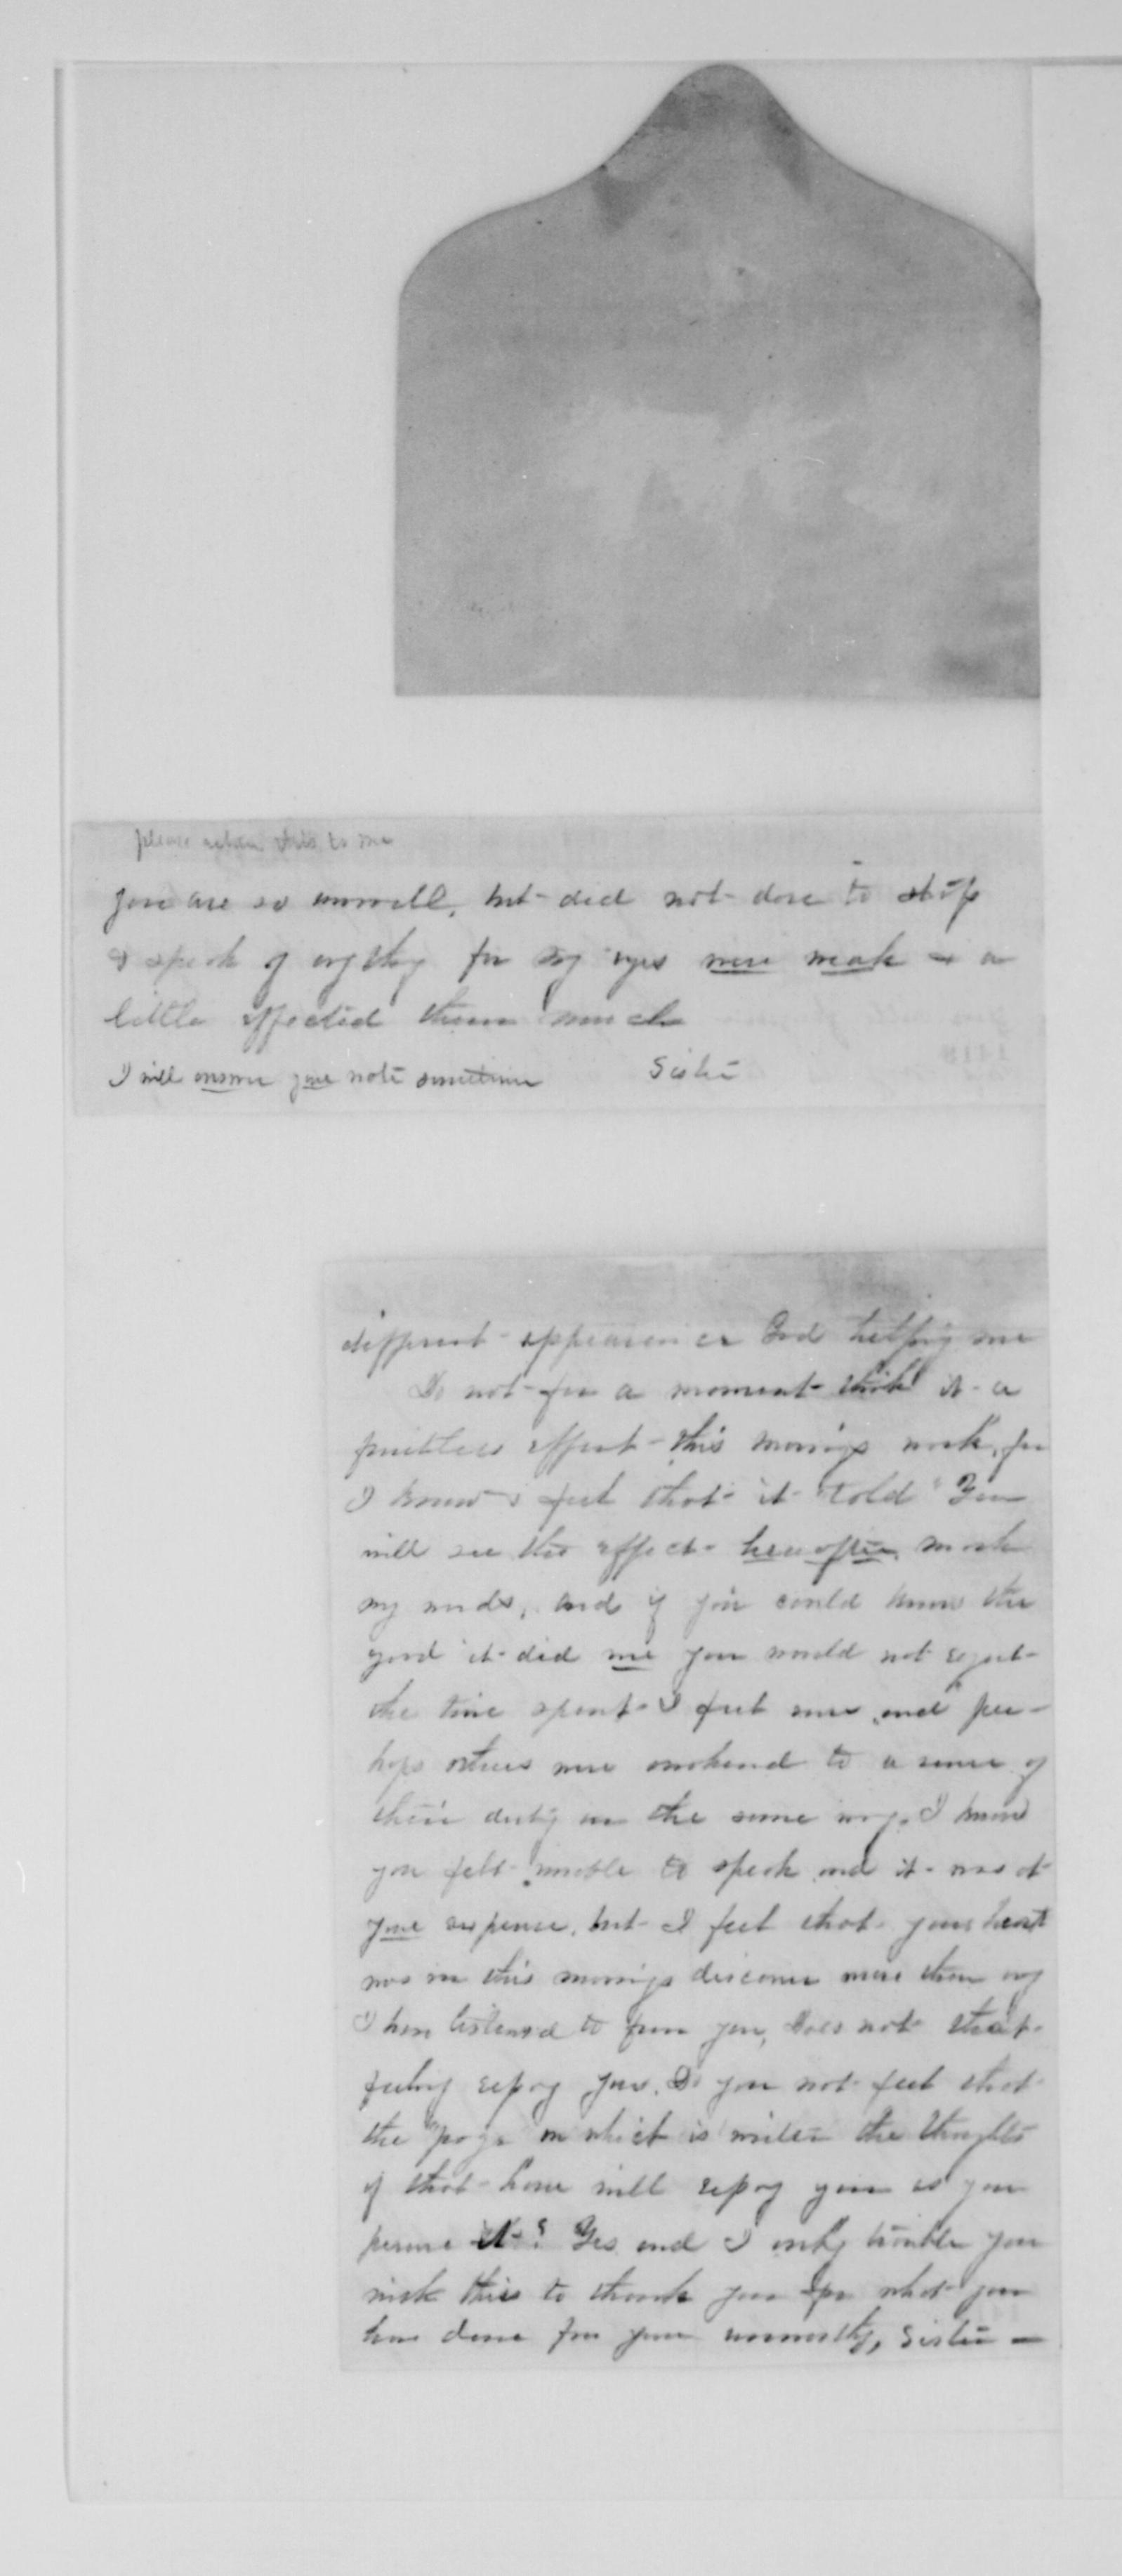 please return this to me
you are so unwell, but did not dare to stop
& speak of anything for my eyes were weak & a
little affected them much
I will answer your note sometime Sister
different appearance God helping me
Do not for a moment think it a
fruitless effort this mornings work, for
I know & feel that it "told" You
will see the effect hereafter, mark
my words, and if you could know the
good it did me you would not regret
the time spent. I feel sure and per-
haps others were awakened to a sense of
their duty in the same way. I know
you felt unable to speak and it was at
your expense, but I feel that your heart
was in this mornings discourse more than any
I have listened to from you, Does not that
feeling repay you. Do you not feel that
the page on which is written the thoughts
of that hour will repay you as you
peruse it? Yes and I only trouble you
with this to thank you for what you
have done for your unworthy, Sister —